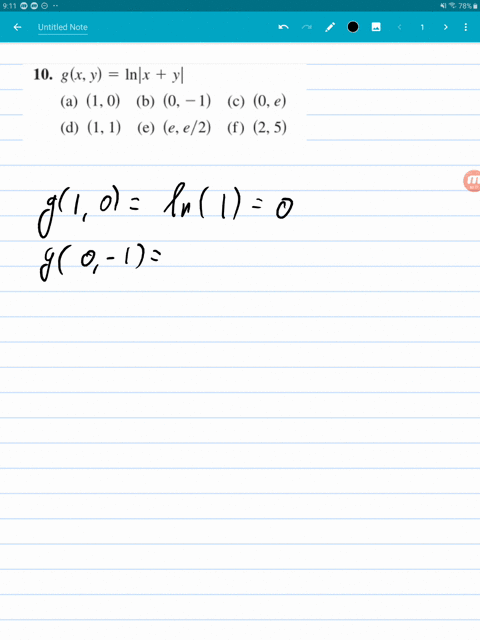 9:11 78%
Untitled Note 1
10. g(x, y) = ln|x + y|
(a) (1, 0) (b) (0, −1) (c) (0, e)
(d) (1, 1) (e) (e, e/2) (f) (2, 5)
g(1, 0) = ln(1) = 0
g(0, -1) =